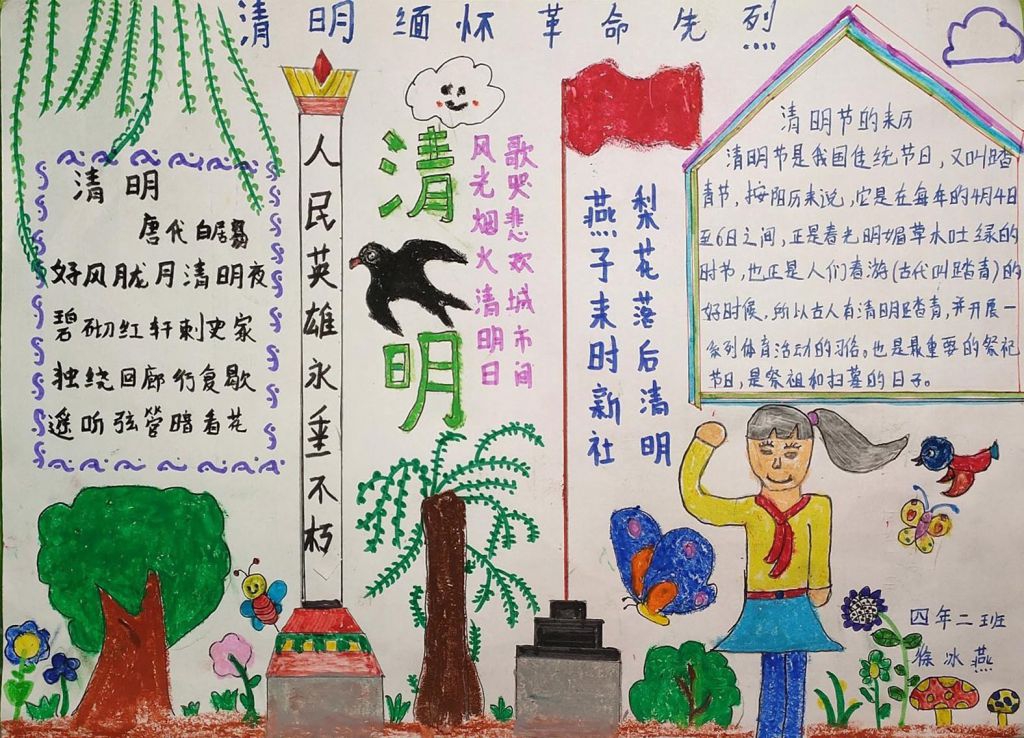 清明缅怀革命先列
清明
唐代白居易
好风胧月清明夜
碧砌红轩刺史家
独绕回廊行复歇
遥听弦管暗看花
人民英雄永垂不朽
清明
歌哭悲欢城市间
风光烟火清明日
梨花落后清明
燕子来时新社
清明节的来历
清明节是我国传统节日，又叫踏
青节，按阳历来说，它是在每年的4月4日
至6日之间，正是春光明媚草木吐绿的
时节，也正是人们春游(古代叫踏青)的
好时候，所以古人有清明踏青，并开展一
系列体育活动的习俗。也是最重要的祭祀
节日，是祭祖和扫墓的日子。
四年二班
徐冰燕